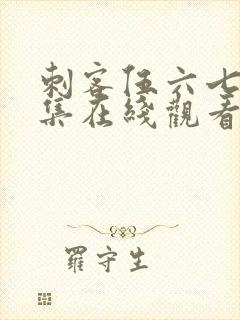 刺客伍六七
集在綫觀看
羅守生